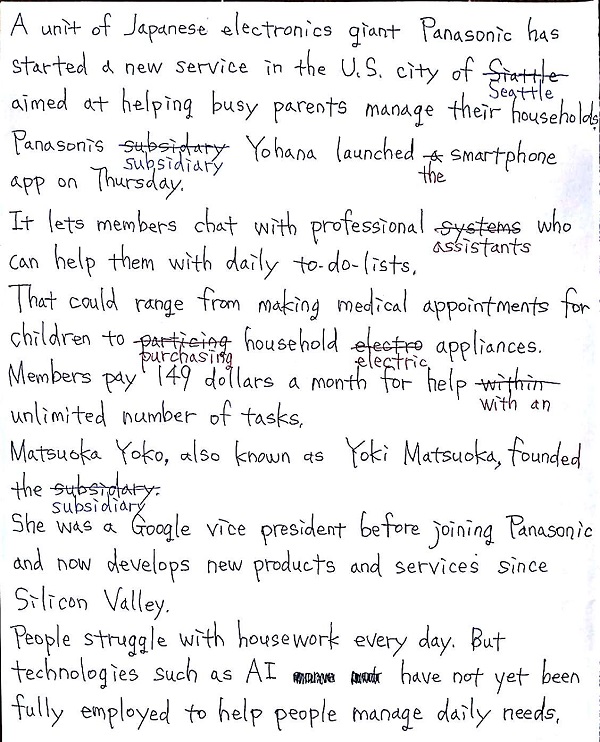 A unit of Japanese electronics giant Panasonic has
started a new service in the U.S. city of Siattle
Seattle
aimed at helping busy parents manage their households
Panasonis subsidary Yohana launched a smartphone
subsidiary the
app on Thursday.
It lets members chat with professional systems who
assistants
can help them with daily to-do-lists.
That could range from making medical appointments for
children to particing household electro appliances.
purchasing electric
Members pay 149 dollars a month for help within
with an
unlimited number of tasks.
Matsuoka Yoko, also known as Yoki Matsuoka, founded
the subsidary.
subsidiary
She was a Google vice president before joining Panasonic
and now develops new products and services since
Silicon Valley.
People struggle with housework every day. But
technologies such as AI have not yet been
fully employed to help people manage daily needs.